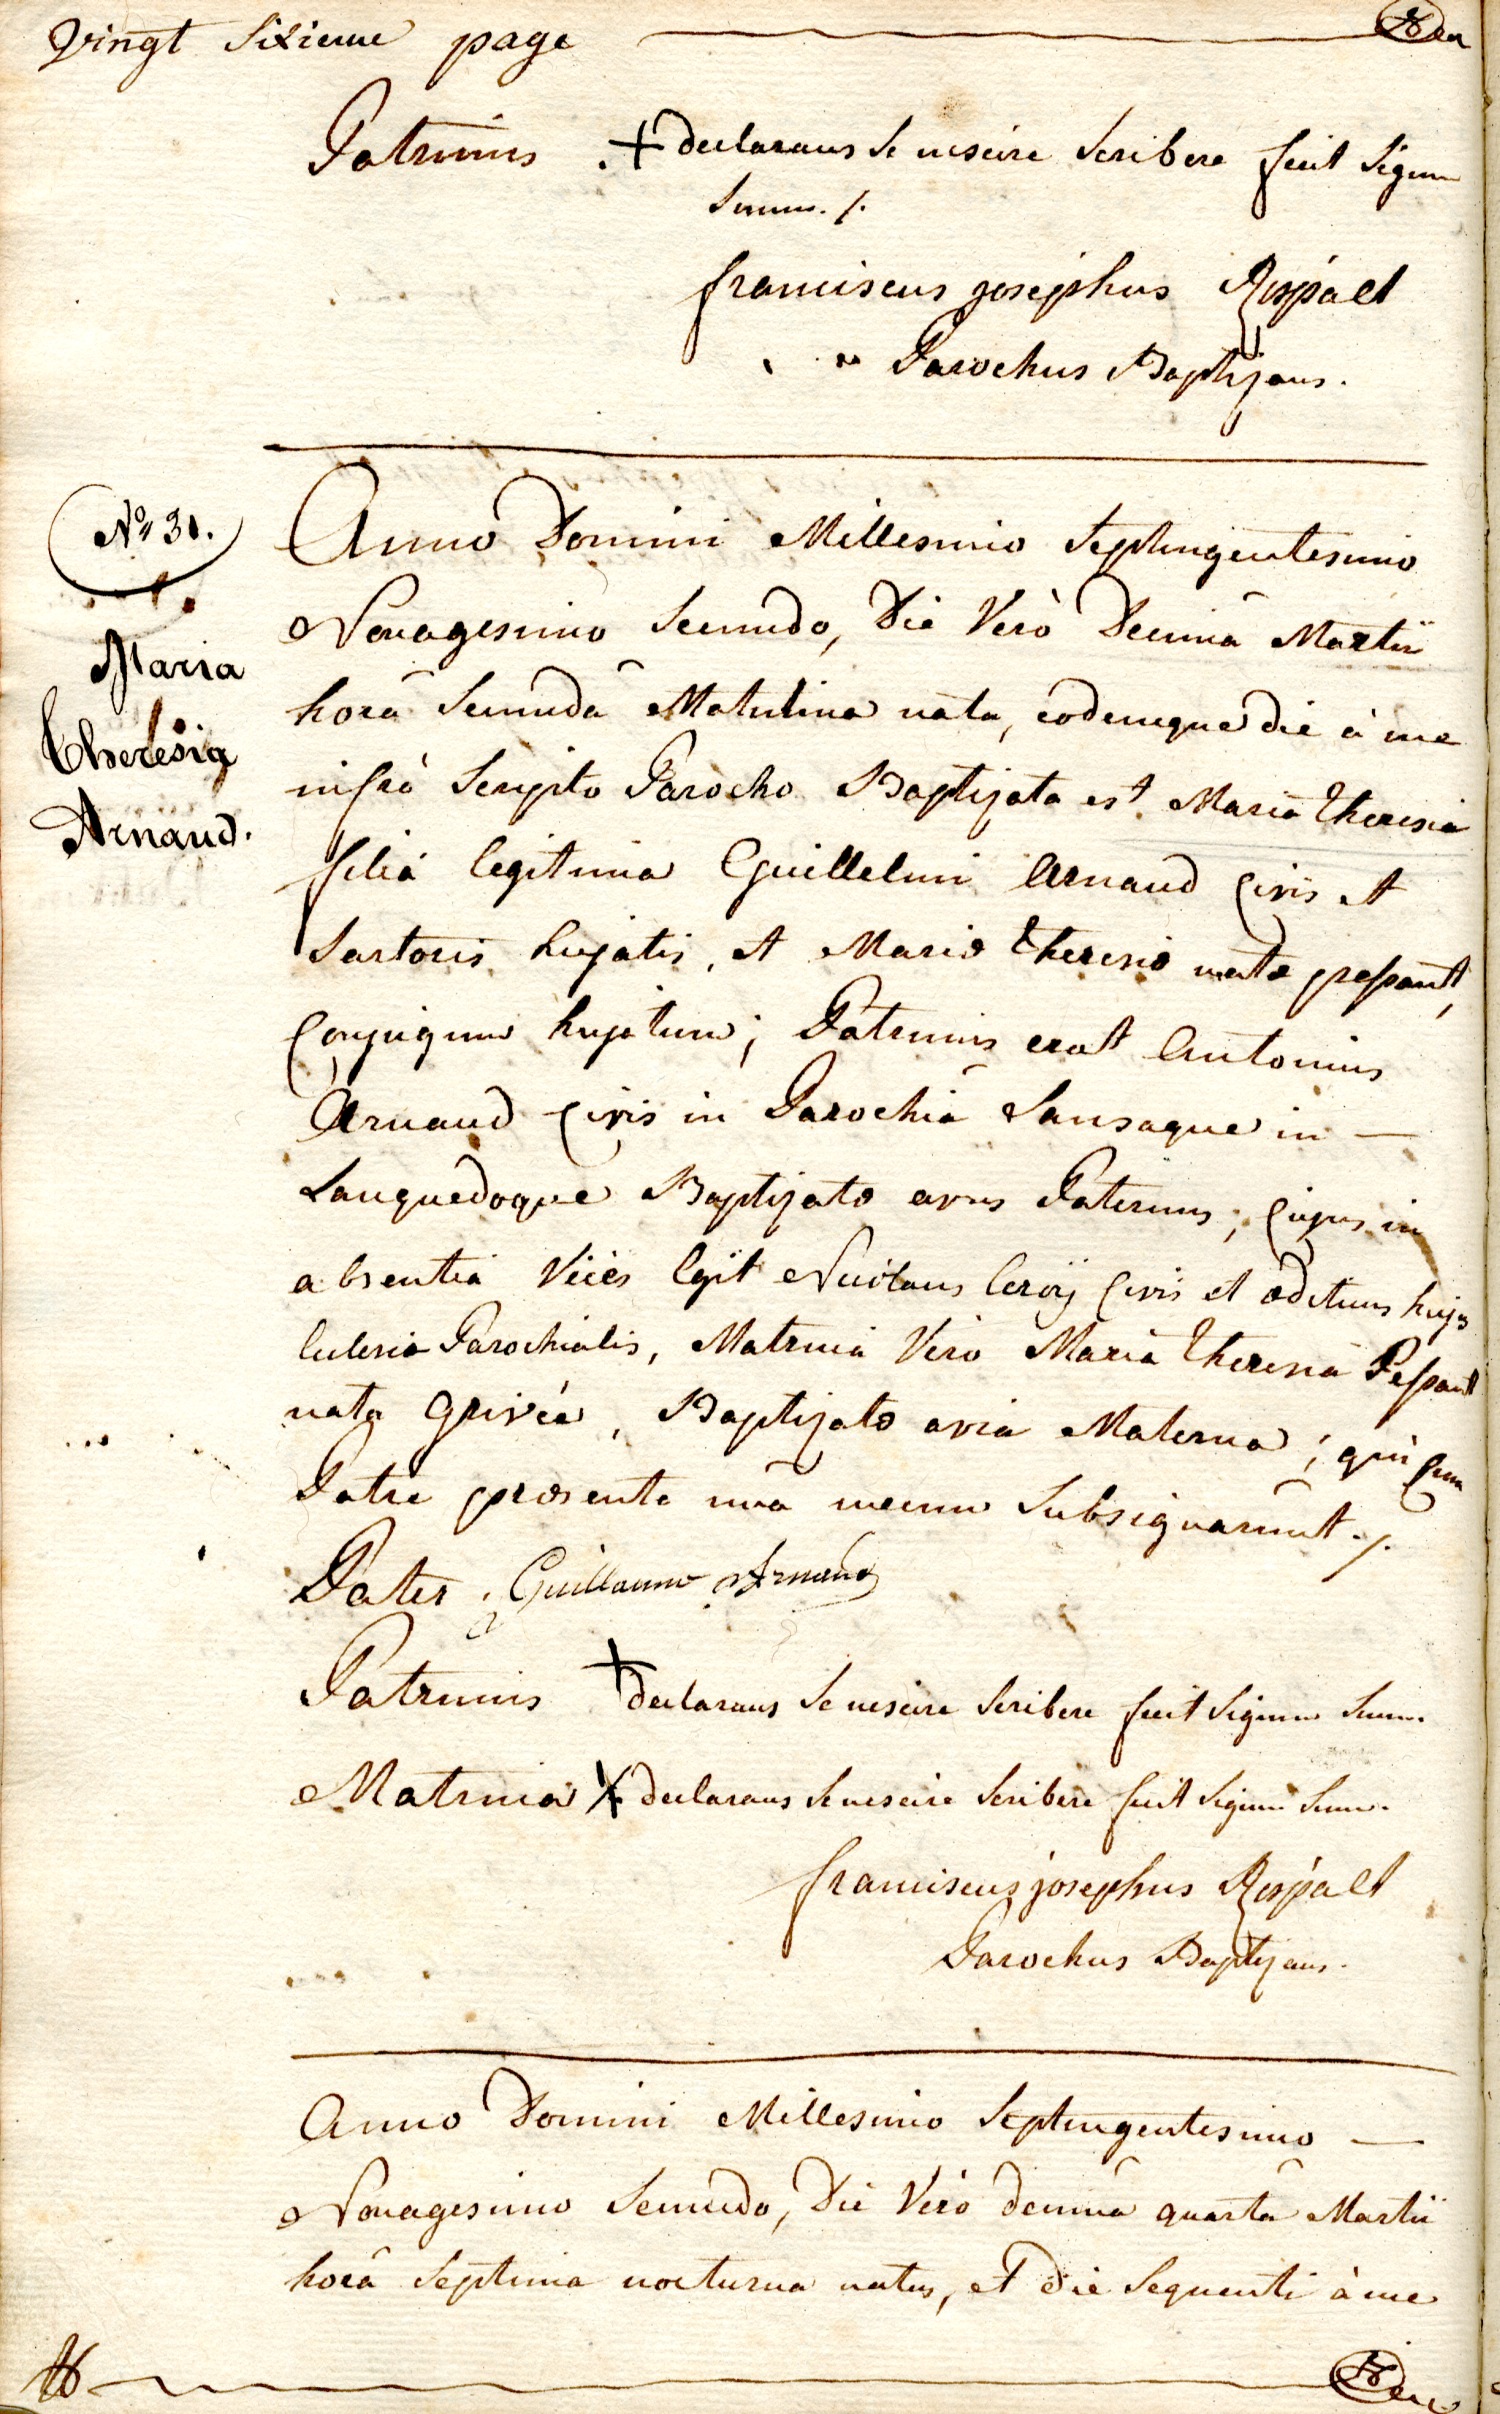 vingt Sixieme page
Patrinus + declarans Se nescire Scribere fecit Signum
Suum ./.
franciscus josephus Rispalt
Parochus Baptizans.
No 31.
Maria
Theresia
Arnaud.
Anno Domini Millesimo Septingentesimo
Nonagesimo Secundo, Die Verò Decimâ Martii
horâ Secundâ Matutina nata, eodemque die à me
infrà Scripto Parocho Baptizata est Maria Theresia
filia legitima Guillelmi Arnaud Civis et
Sartoris hujatis, et Mariæ Theresiæ natæ pessant,
Conjugum hujatum; Patrinus erat Antonius
Arnaud Civis in Parochiâ Sansaque in —
Languedoque Baptizatæ avus Paternus, Cujus in
absentia Vices Egit Nicolaus leroÿ Civis et ædituus hujus
Eclesiæ Parochialis, Matrina Vero Maria Theresia Pessant
nata Grivéa, Baptizatæ avia Materna; qui Cum
Patre præsente unâ mecum Subsignarunt ./.
Pater Guillaume Arnaud
Patrinus + declarans Se nescire Scribere fecit Signum Suum.
Matrina + declarans Se nescire Scribere fecit Signum Suum.
franciscus josephus Rispalt
Parochus Baptizans.
Anno Domini Millesimo Septingentesimo —
Nonagesimo Secundo, Die Verò decimâ quartâ Martii
horâ Septima nocturna natus, et die Sequenti à me